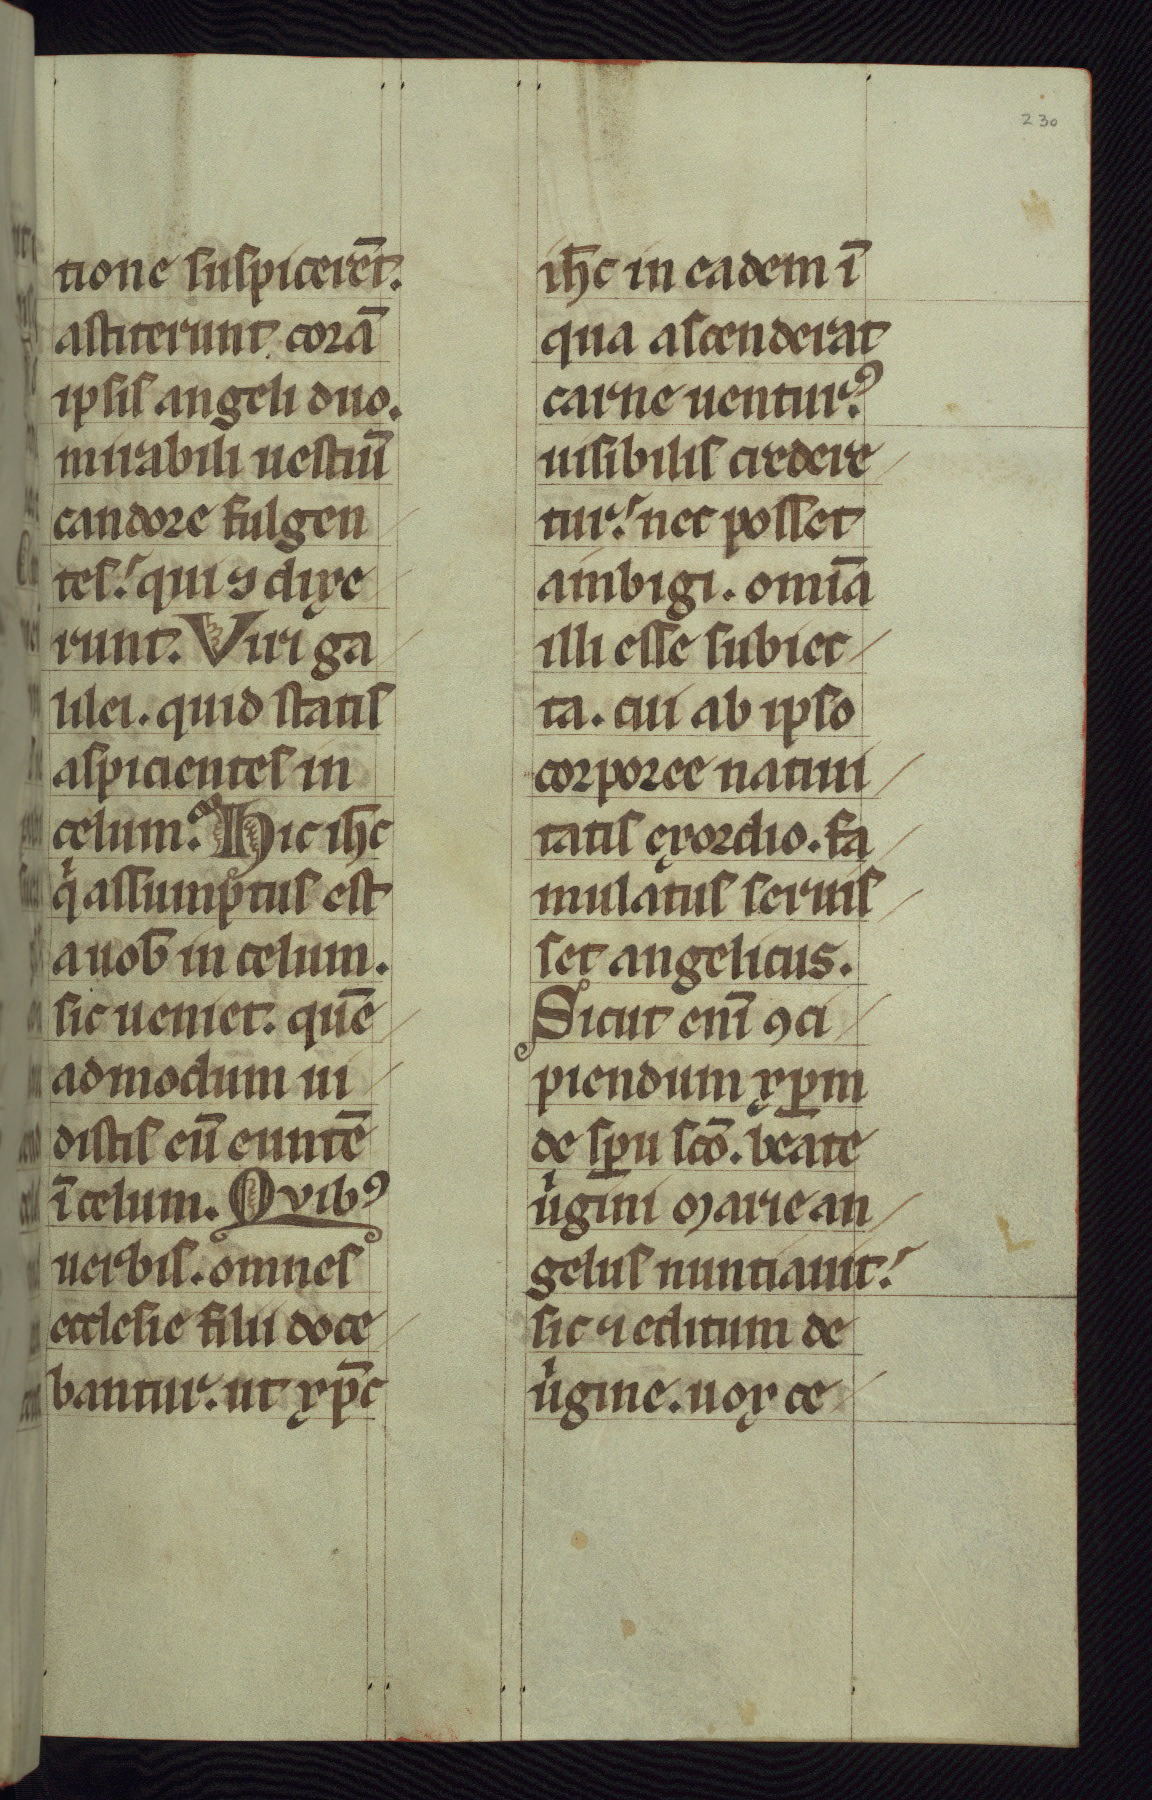 230
tione suspicerēt.
astiterunt corā
ipsis angeli duo.
mirabili uestiū
candore fulgen
tes. qui ⁊ dixe
runt. Viri ga
lilei. quid statis
aspicientes in
celum. Hic ih̄c
qͥ assumptus est
a uob̄ in celum.
sic ueniet. quē
admodum ui
distis eū euntē
ī celum. Quibꝰ
uerbis. omnes
ecclesie filii doce
bantur. ut xp̄c
ih̄c in eadem ī
qua ascenderat
carne uenturꝰ.
uisibilis credere
tur. nec posset
ambigi. omīa
illi esse subiec
ta. cui ab ipso
corporee natiui
tatis exordio. fa
mulatus seruis
set angelicus.
Sicut enī ꝯci
piendum xp̄m
de sp̄u scō. beate
uͥgini Marie an
gelus nuntiauit.
sic ⁊ editum de
uͥgine. uox ce